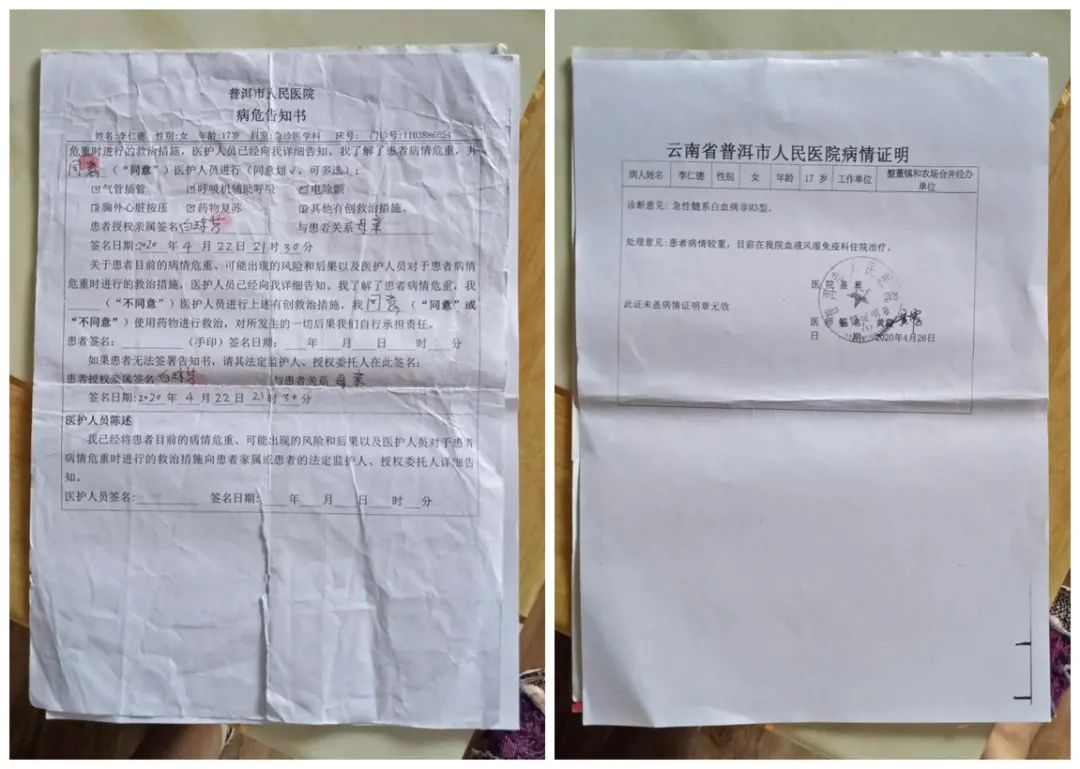 普洱市人民医院
病危告知书
姓名:李仁德 性别:女 年龄:17岁 科室:急诊医学科 床号: 门诊号:1103886654
危重时进行的救治措施，医护人员已经向我详细告知。我了解了患者病情危重，并
同意（“同意”）医护人员进行（同意划√，可多选）：
☑气管插管 ☑呼吸机辅助呼吸 ☑电除颤
☑胸外心脏按压 ☑药物复苏 ☑其他有创救治措施。
患者授权亲属签名 与患者关系母亲
签名日期:2020年4月22日21时30分
关于患者目前的病情危重、可能出现的风险和后果以及医护人员对于患者病情
危重时进行的救治措施，医护人员已经向我详细告知。我了解了患者病情危重，我
（“不同意”）医护人员进行上述有创救治措施，我同意（“同意”或
“不同意”）使用药物进行救治，对所发生的一切后果我们自行承担责任。
患者签名： （手印）签名日期： 年 月 日 时 分
如果患者无法签署告知书，请其法定监护人、授权委托人在此签名：
患者授权亲属签名 与患者关系母亲
签名日期:2020年4月22日21时30分
医护人员陈述
我已经将患者目前的病情危重、可能出现的风险和后果以及医护人员对于患者
病情危重时进行的救治措施向患者家属或患者的法定监护人、授权委托人详细告
知。
医护人员签名: 签名日期: 年 月 日 时 分
云南省普洱市人民医院病情证明
病人姓名 李仁德 性别 女 年龄 17 岁 工作单位 整董镇和农场合并经办
单位
诊断意见：急性髓系白血病非M3型。
处理意见：患者病情较重，目前在我院血液风湿免疫科住院治疗。
医 院 盖 章
此证未盖病情证明章无效
医
日 期 2020年4月26日